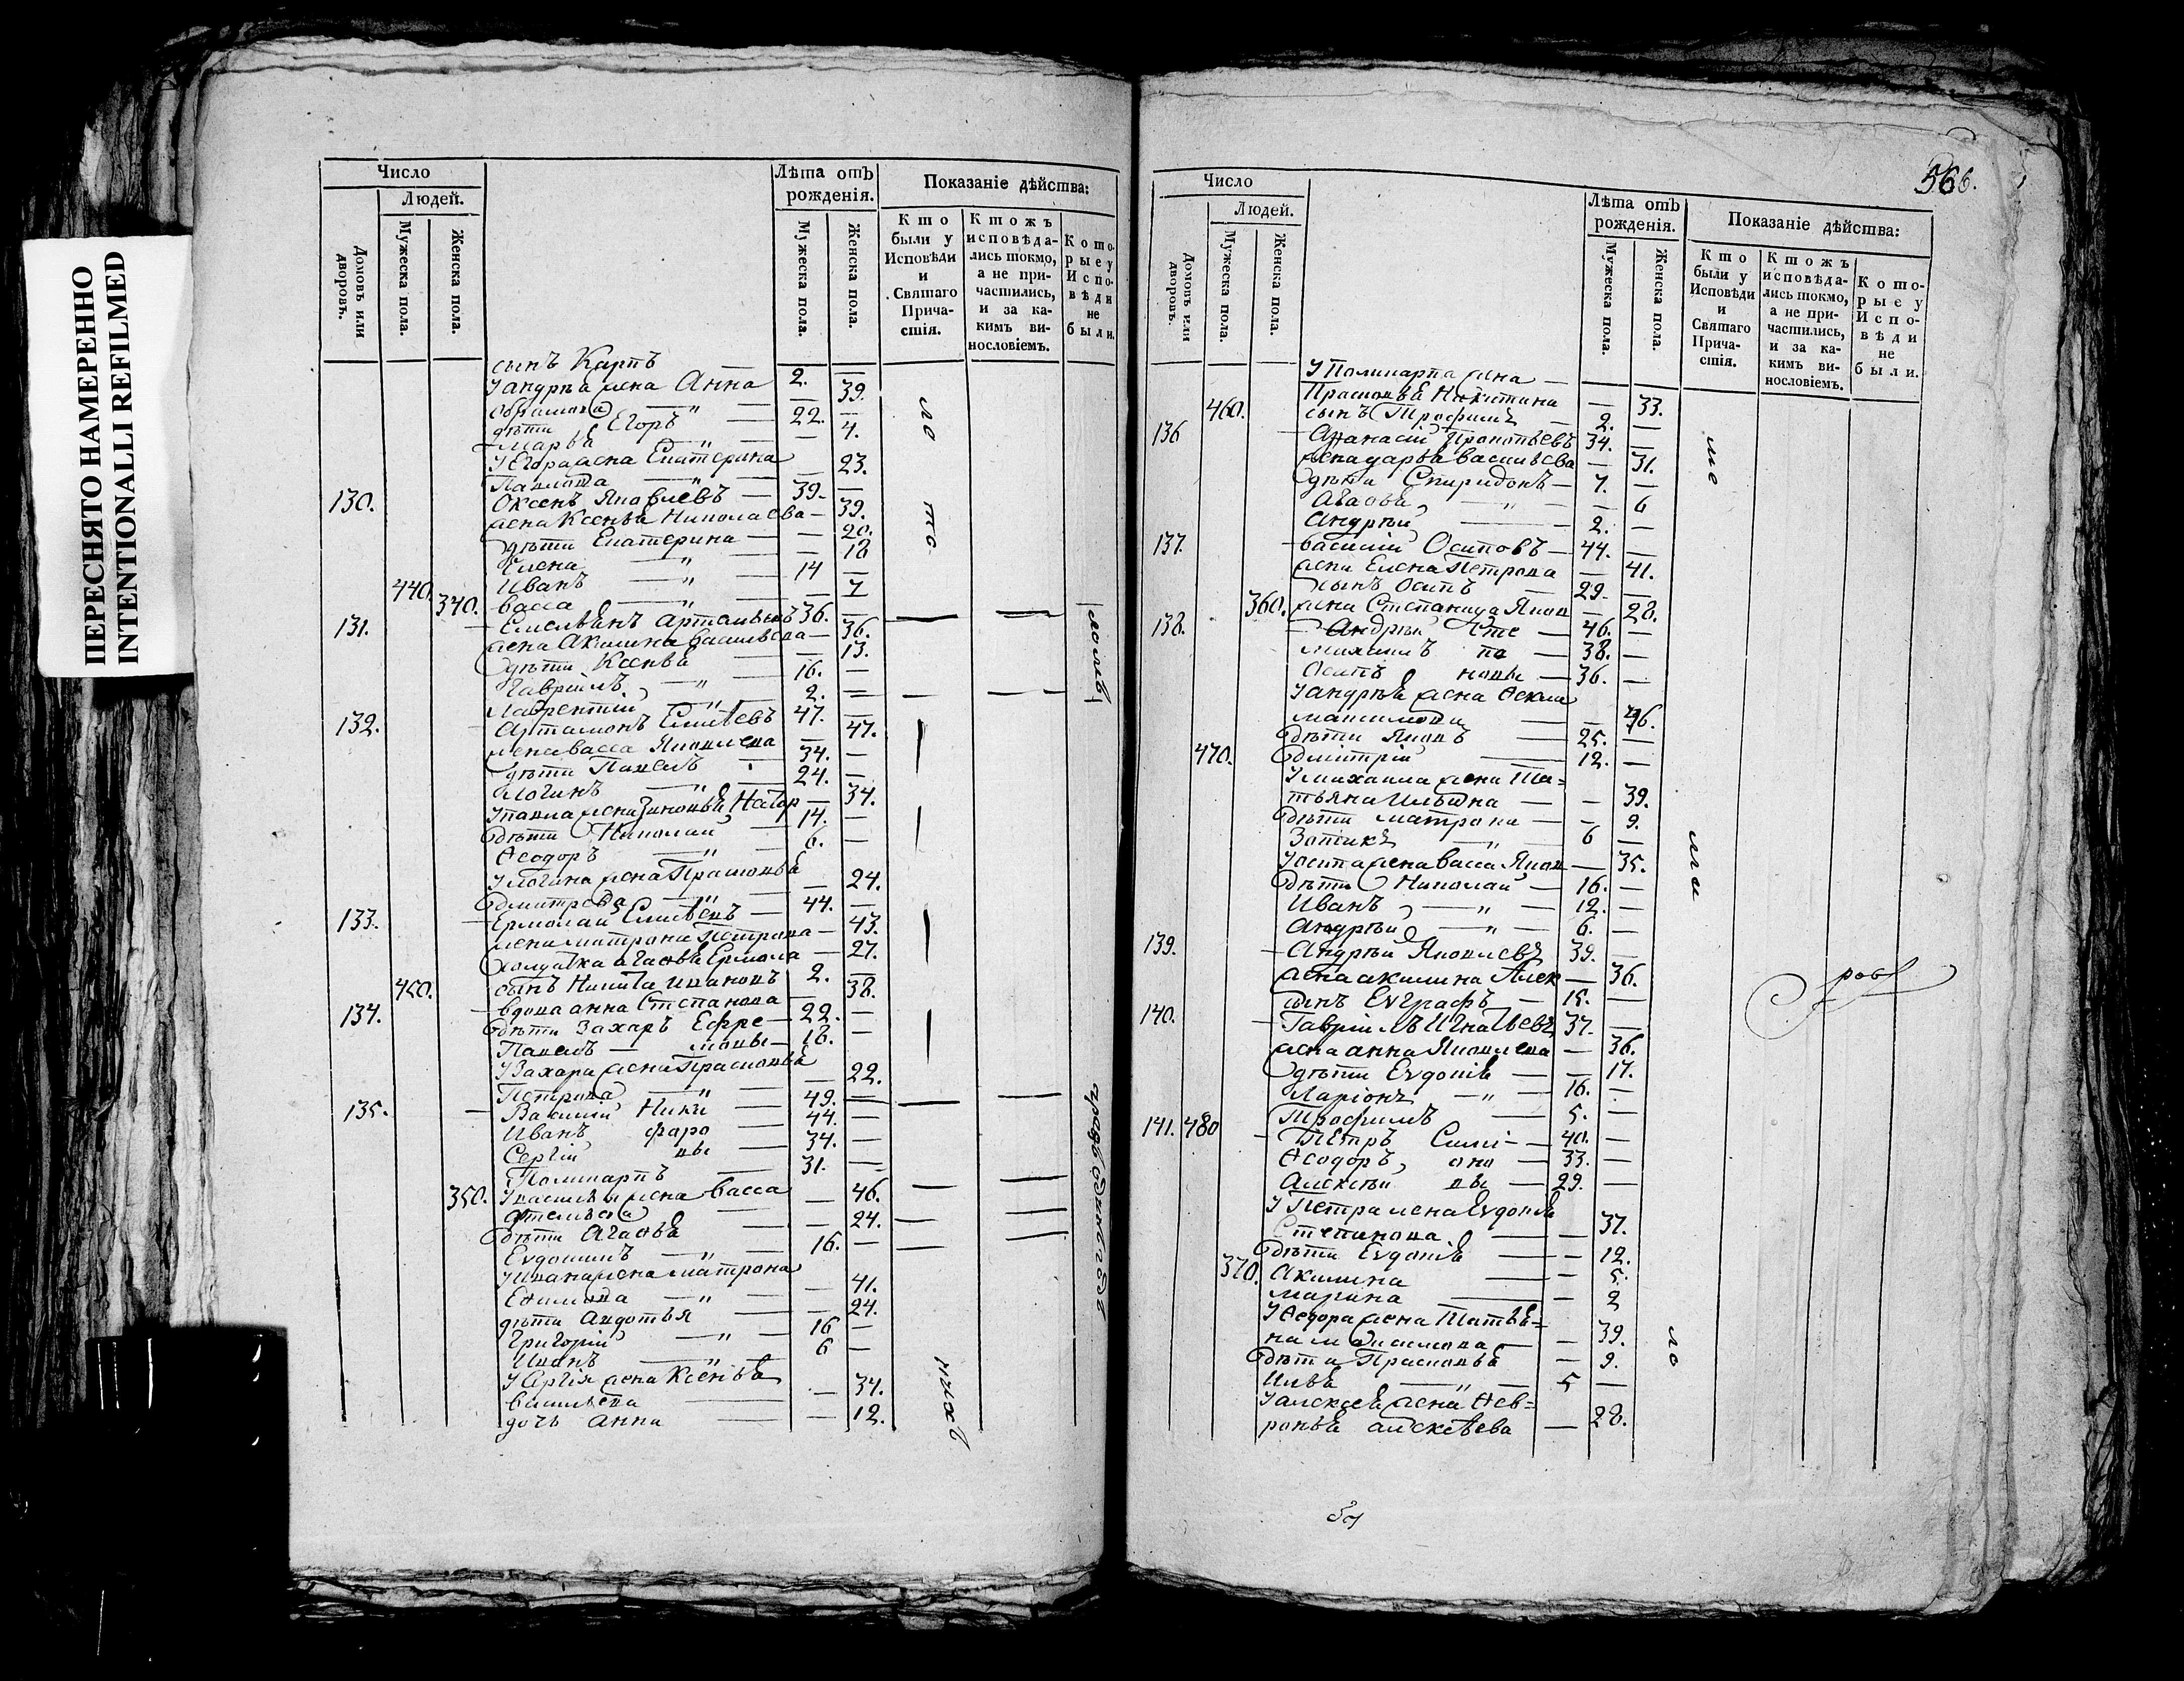 ПЕРЕСНЯТО НАМЕРЕННО
INTENTIONALLI REFILMED
Число
Людей.
Домовъ или дворовъ.
Мужеска пола.
Женска пола.
Лѣта отъ рожденія.
Мужеска пола.
Женска пола.
Показаніе дѣйства:
Кто были у Исповѣди и Святаго Причастія.
Ктожъ исповѣдались токмо, а не причастились, и за какимъ винословіемъ.
Которые у Исповѣди не были.
сынъ Карпъ — 2. —
У Андрѣа жена Анна — 39.
дѣти Егоръ — 22. —
Марѳа — 4.
У Егора жена Екатерина
Павлова — 23.
130. Оксенъ Яковлевъ — 39. —
жена Ксенѣа Николаева — 39.
дѣти Екатерина — 20.
Елена — 18
440. Иванъ — 14 —
340. васса — 7
131. Селиванъ Артамоновъ 36. —
жена Акилина васильева — 36.
дѣти Ксенѣа — 13.
Гавріилъ — 16. —
Лаврентій — 2. —
132. Артамонъ Елисѣевъ 47. —
жена васса Яковлева — 47.
дѣти Павелъ 34. —
Логинъ 24. —
У павла жена Зиновѣа Нагор — 34.
дѣти Николай — 14. —
Ѳеодоръ — 6. —
У логина жена Прасковѣа
дмитрева — 24.
133. Ермолай Елисѣевъ — 44. —
жена матрона Петрова — 43.
солдатка агаѳѣа Ермола — 27.
450. сынъ Никита ивановъ 2. —
134. вдова анна Степанова — 38.
дѣти Захаръ Ефре — 22. —
Павелъ — мовы — 18. —
У Захара жена Прасковѣа
Петрова — 22.
135. Василій Ники — 49. —
Иванъ форо — 44. —
Сергій вы — 34. —
Поликарпъ — 31. —
350. У василѣа жена васса
— 46.
дѣти Агаѳѣа — 24.
Евдокимъ — 16. —
У ивана жена матрона
Еѳимова — 41.
дѣти авдотья — 24.
Григорій — 16 —
Иванъ — 6 —
У Сергія жена Ксенѣа
васильева — 34.
дочь анна — 12.
566.
Число
Людей.
Домовъ или дворовъ.
Мужеска пола.
Женска пола.
Лѣта отъ рожденія.
Мужеска пола.
Женска пола.
Показаніе дѣйства:
Кто были у Исповѣди и Святаго Причастія.
Ктожъ исповѣдались токмо, а не причастились, и за какимъ винословіемъ.
Которые у Исповѣди не были.
У Поликарпа жена —
Прасковѣа Никитина — 33.
460. сынъ Трофимъ — 2. —
136 Аѳанасій Прокопьевъ 34. —
жена дарѣа василѣева — 31.
дѣти Спиридонъ — 7. —
Агаѳѣа — 6
Андрѣй — 2. —
137. василій Осиповъ — 44. —
жена Елена Петрова — 41.
сынъ Осипъ — 29. —
360. жена Степанида Яков — 28.
138. Андрѣй Сте — 46. —
михаилъ па — 38. —
Осипъ новы — 36. —
У андрѣа жена Ѳекла
максимова — 46.
дѣти Яковъ — 25. —
470. дмитрій — 12. —
У михаила жена Та=
тьяна Ильина — 39.
дѣти матрона — 9.
Зотикъ — 6 —
У осипа жена васса Яков — 35.
дѣти Николай — 16. —
Иванъ — 12. —
Андрѣй — 6. —
139. Андрѣй Яковлевъ 39. —
жена акилина Алек — 36.
сынъ Евграфъ — 15. —
140. Гавріилъ Игнатьевъ 37. —
жена анна Яковлева — 36.
дѣти Евдокіѣ — 17.
Ларіонъ — 16. —
Трофимъ — 5. —
141. 480 Петръ Симі — 40. —
Ѳеодоръ оно — 33. —
Алексѣй вы — 29. —
У Петра жена Евдокіѣ
Степанова — 37.
дѣти Евдокіѣ — 12.
370. Акилина — 5.
Марина — 2
У Ѳедора жена Татьѣ=
на — 39.
дѣти Прасковѣа — 9.
Илѣа — 5 —
У алексѣа жена Ѳев=
ронѣа алексѣева — 28.